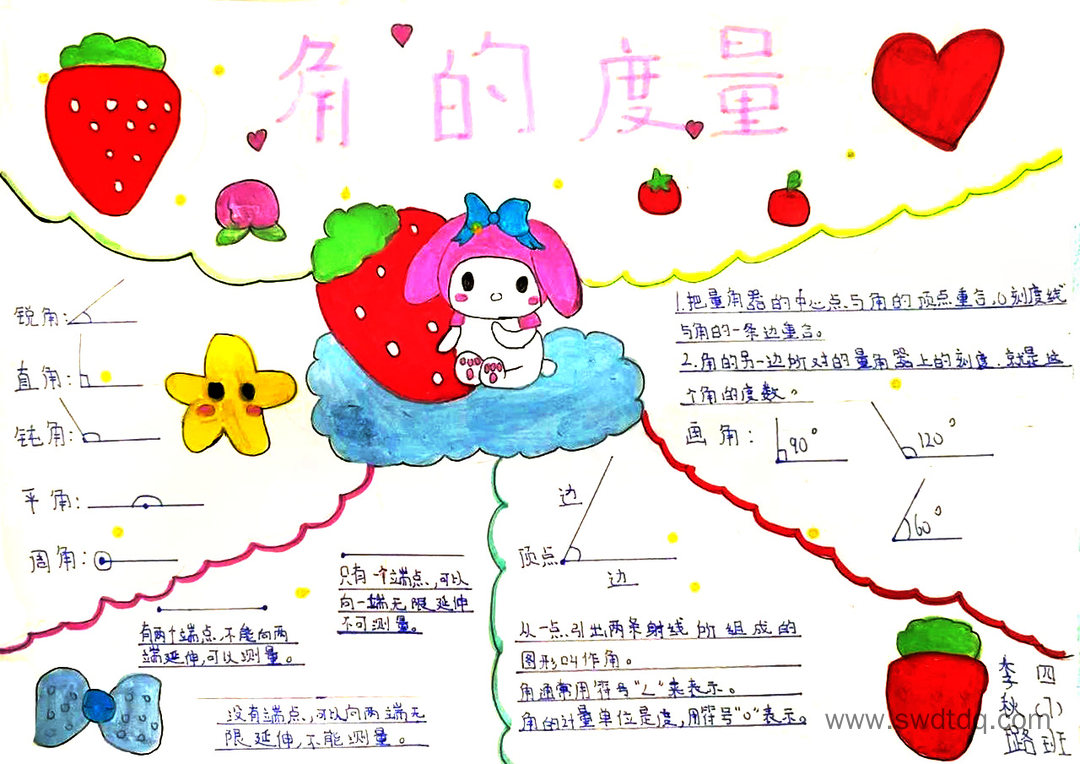 角的度量
锐角:
直角:
钝角:
平角:
周角:
1.把量角器的中心点与角的顶点重合,0刻度线
与角的一条边重合。
2.角的另一边所对的量角器上的刻度.就是这
个角的度数。
画角:
90°
120°
60°
边
顶点
边
只有一个端点,可以
向一端无限延伸
不可测量。
有两个端点,不能向两
端延伸,可以测量。
没有端点,可以向两端无
限延伸,不能测量。
从一点引出两条射线所组成的
图形叫作角。
角通常用符号"∠"来表示。
角的计量单位是度,用符号"°"表示。
四(7)班
李秋璐
www.swdtdq.com